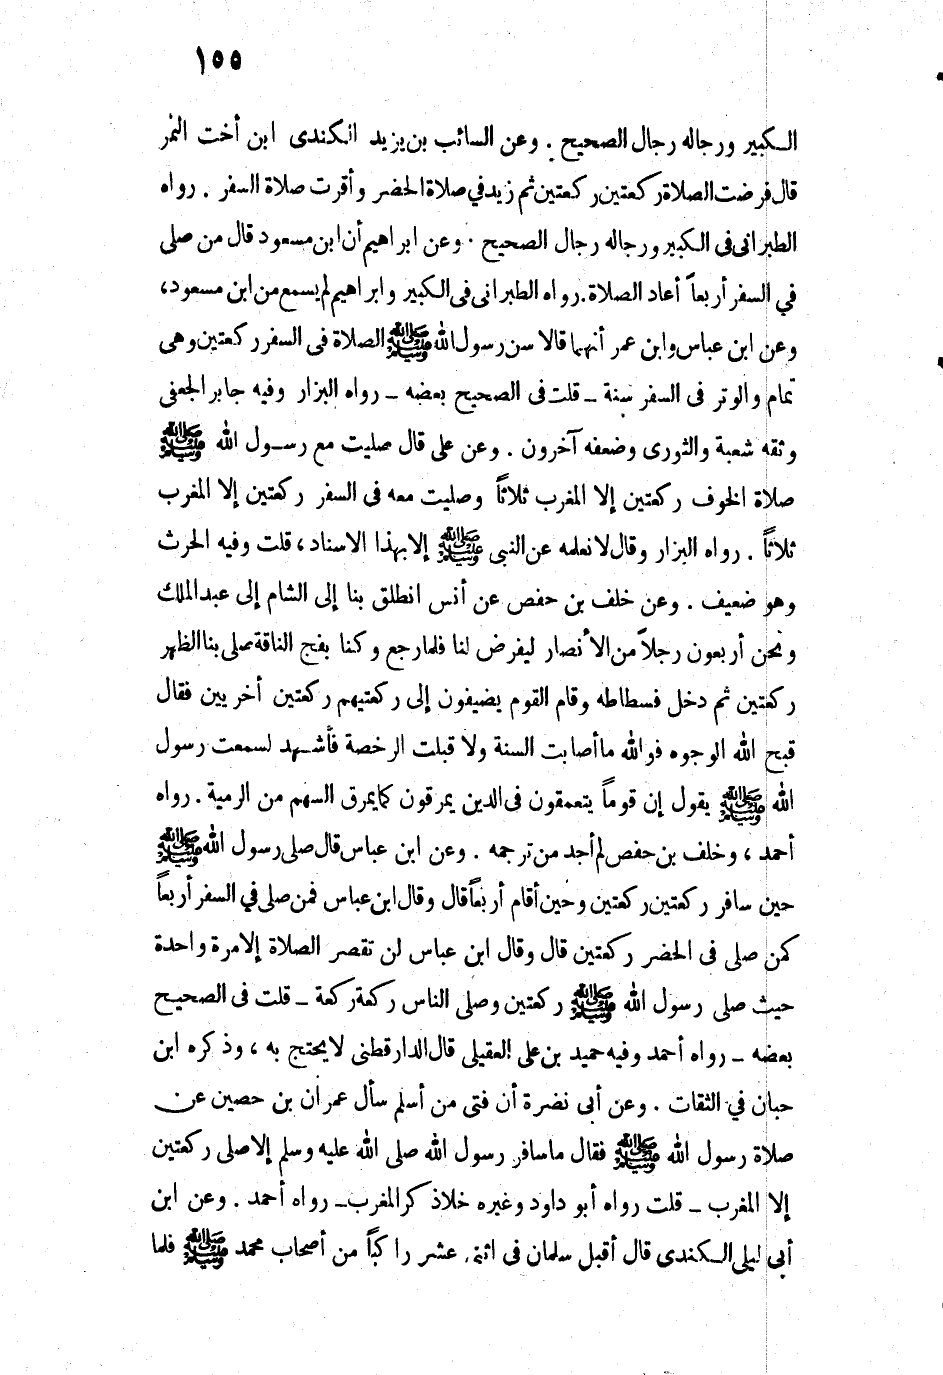 ١٥٥
الـكبير ورجاله رجال الصحيح . وعن السائب بن يزيد الكندى ابن أخت النمر
قال فرضت الصلاة ركعتين ركعتين ثم زيد في صلاة الحضر وأقرت صلاة السفر . رواه
الطبرانى فى الكبير ورجاله رجال الصحيح . وعن ابراهيم أن ابن مسعود قال من صلى
في السفر أربعاً أعاد الصلاة . رواه الطبرانى فى الكبير وابراهيم لم يسمع من ابن مسعود،
وعن ابن عباس وابن عمر أنهما قالا سن رسول الله ﷺ الصلاة فى السفر ركعتين وهى
تمام والوتر فى السفر سنة ــ قلت فى الصحيح بعضه ــ رواه البزار وفيه جابر الجعفى
وثقه شعبة والثورى وضعفه آخرون . وعن على قال صليت مع رسـول الله ﷺ
صلاة الخوف ركعتين إلا المغرب ثلاثاً وصليت معه فى السفر ركعتين إلا المغرب
ثلاثاً . رواه البزار وقال لا نعلمه عن النبى ﷺ إلا بهذا الاسناد، قلت وفيه الحرث
وهو ضعيف . وعن خلف بن حفص عن أنس انطلق بنا إلى الشام إلى عبد الملك
ونحن أربعون رجلاً من الأنصار ليفرض لنا فلما رجع وكنا بفج الناقة صلى بنا الظهر
ركعتين ثم دخل فسطاطه وقام القوم يضيفون إلى ركعتيهم ركعتين أخريين فقال
قبح الله الوجوه فوالله ما أصابت السنة ولا قبلت الرخصة فأشـهد لسمعت رسول
الله ﷺ يقول إن قوماً يتعمقون فى الدين يمرقون كما يمرق السهم من الرمية . رواه
أحمد ، وخلف بن حفص لم أجد من ترجمه . وعن ابن عباس قال صلى رسول الله ﷺ
حين سافر ركعتين ركعتين وحين أقام أربعاً قال وقال ابن عباس فمن صلى في السفر أربعاً
كمن صلى فى الحضر ركعتين قال وقال ابن عباس لن تقصر الصلاة إلا مرة واحدة
حيث صلى رسول الله ﷺ ركعتين وصلى الناس ركعة ركعة ــ قلت فى الصحيح
بعضه ــ رواه أحمد وفيه حميد بن على العقيلى قال الدارقطنى لا يحتج به ، وذكره ابن
حبان في الثقات . وعن أبى نضرة أن فتى من أسلم سأل عمران بن حصين عن
صلاة رسول الله ﷺ فقال ما سافر رسول الله صلى الله عليه وسلم إلا صلى ركعتين
إلا المغرب ــ قلت رواه أبو داود وغيره خلا ذكر المغرب ــ رواه أحمد . وعن ابن
أبى ليلى الـكندى قال أقبل سلمان فى اثنى عشر راكباً من أصحاب محمد ﷺ فلما